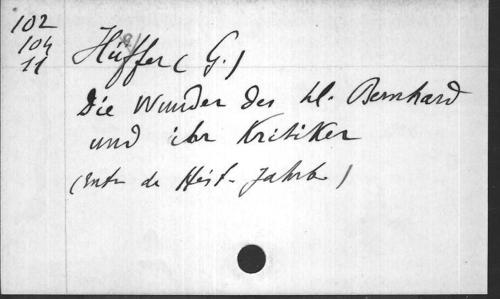 102
104
11
Hüffer (G.)
Die Wunder des hl. Bernhard
und ihr Kritiker
(Extr de Hist. Jahrb)